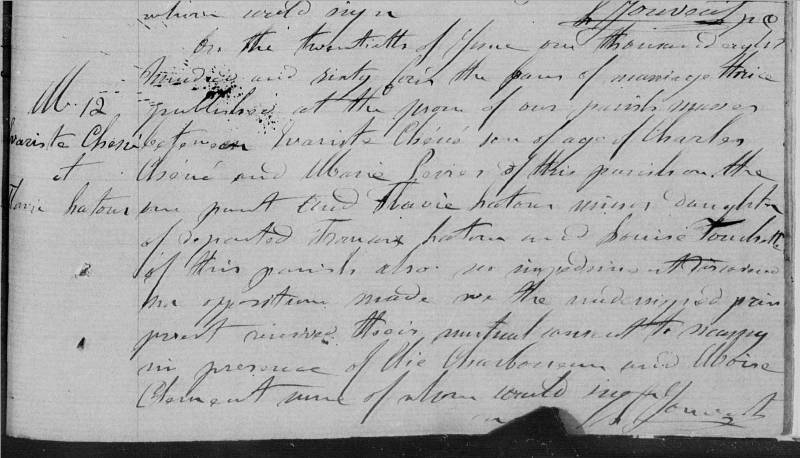 whom would sign
J. Jouvent ptre
On the twentieth of June one thousand eight
hundred and sixty four the bans of marriage thrice
M. 12
published at the prone of our parish masses
Evariste Chéné
between Evariste Chéné son of age of Charles
et
Chéné and Marie of this parish on the
Flavie Latour
one part and Flavie Latour minor daughter
of departed Latour and Louise
of this parish also no impediment discovered
no opposition made we the undersigned
priest received their mutual consent to marry
in presence of Elie Charbonneau and Moise
Clement none of whom would sign Jouvent